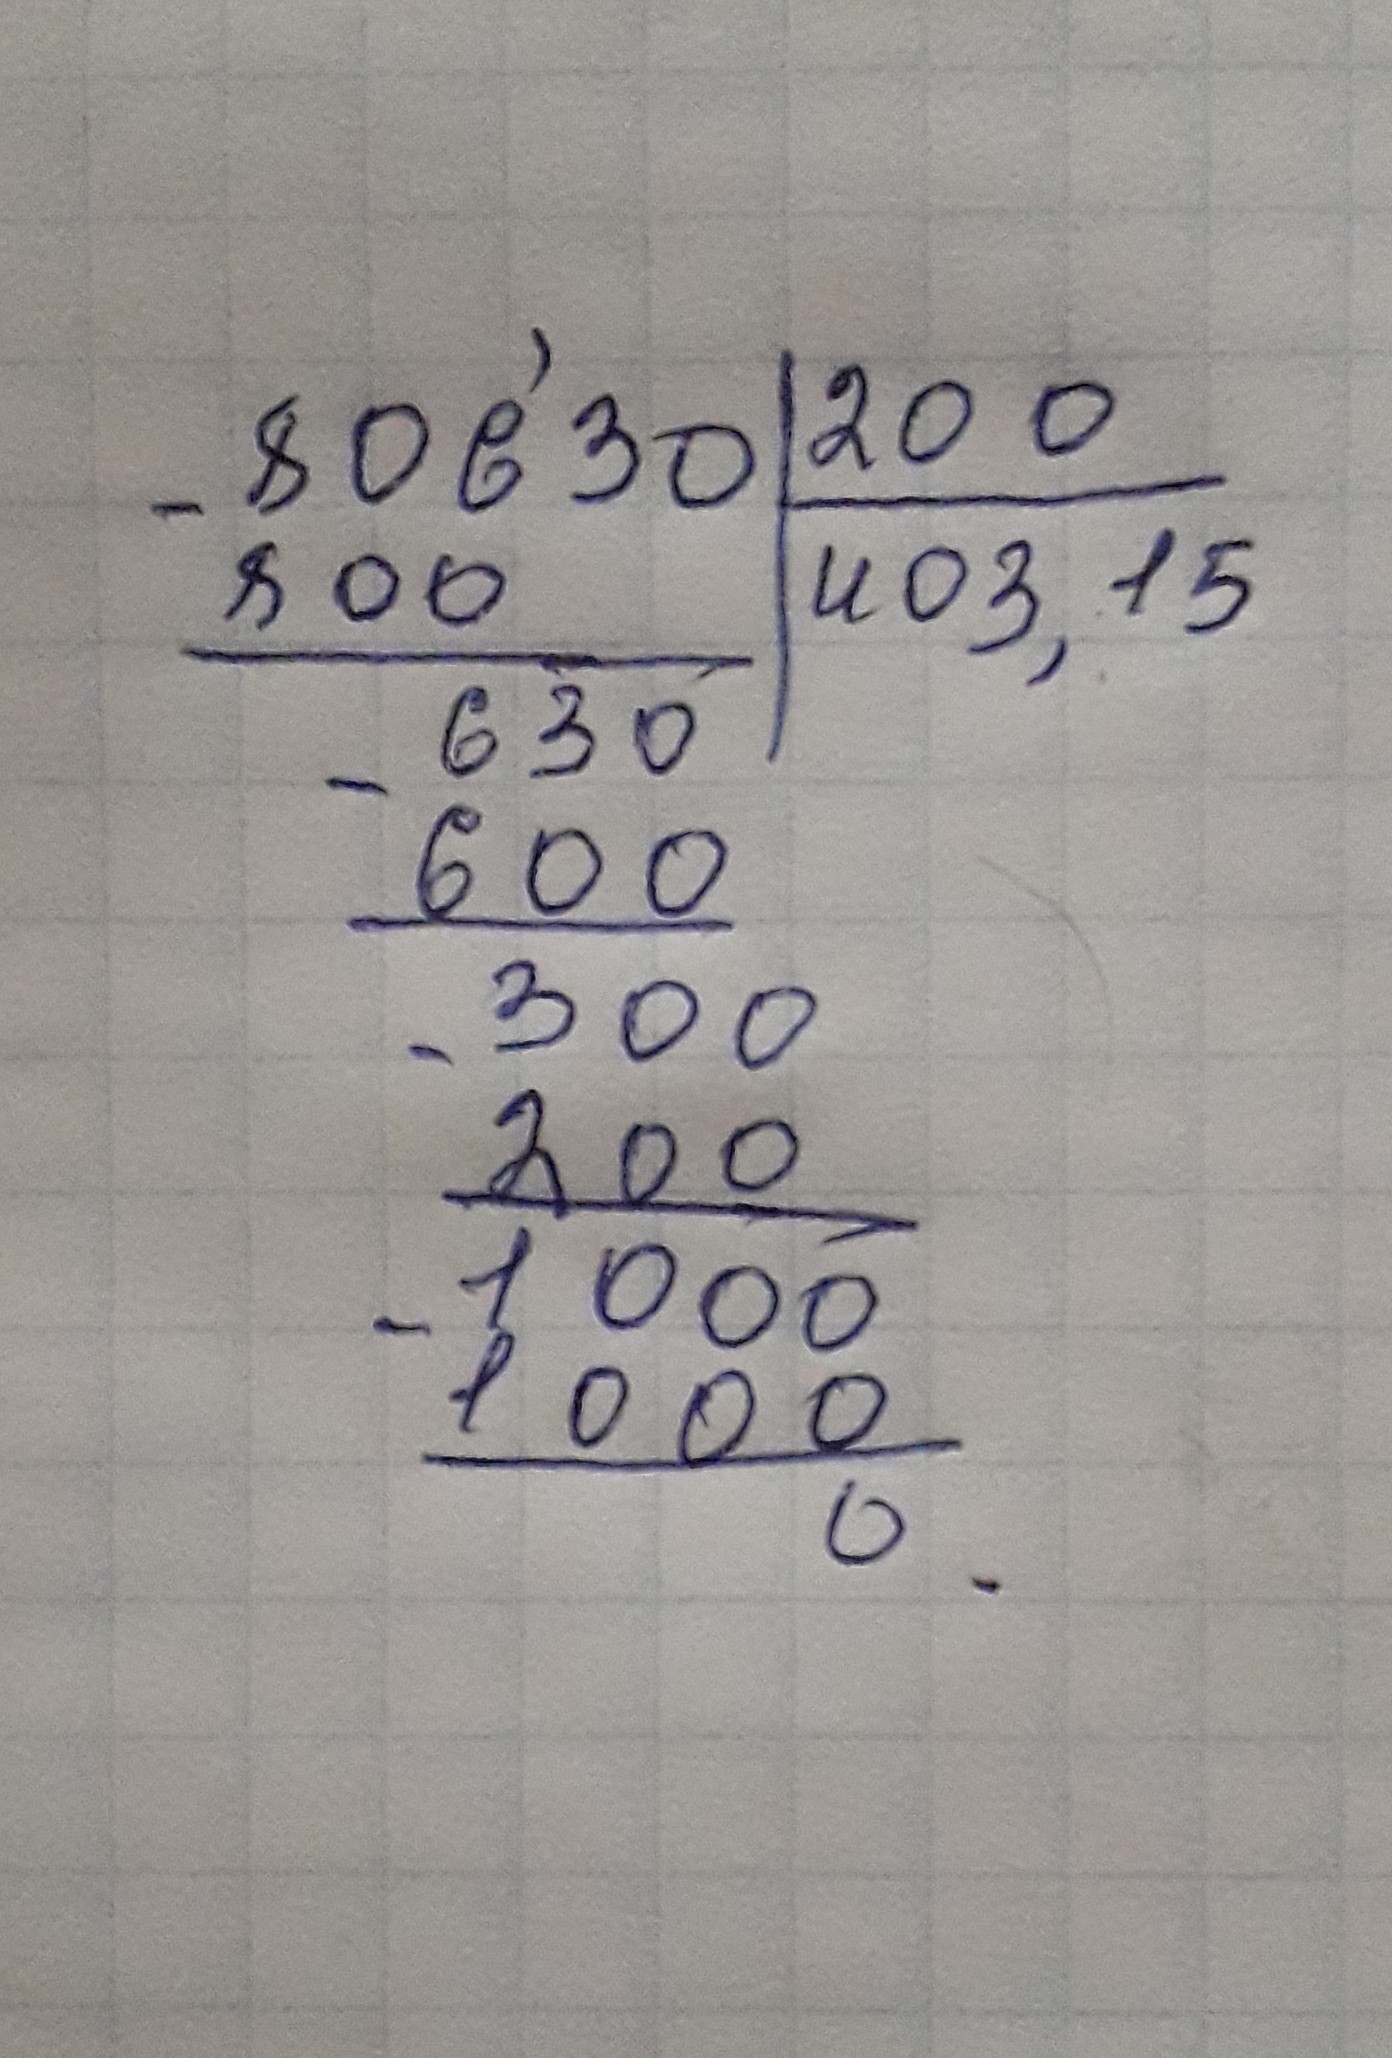 - 806'30 | 200
800 | 403,15
- 630
600
- 300
200
- 1000
1000
0.